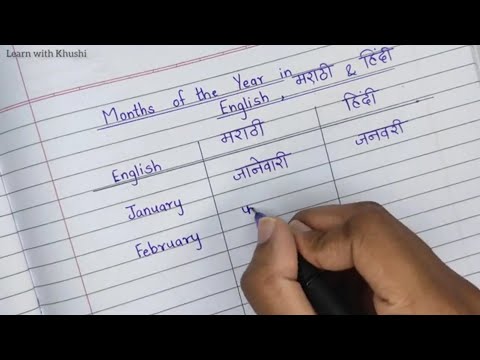 Learn with Khushi
Months of the Year in मराठी & हिंदी
English,
मराठी हिंदी
English
January जानेवारी जनवरी
February फ